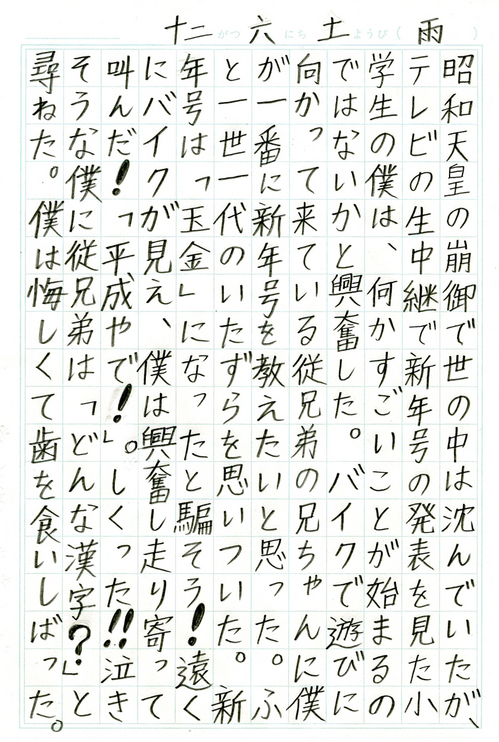 十二がつ六にち土ようび(雨)
昭和天皇の崩御で世の中は沈んでいたが、
テレビの生中継で新年号の発表を見た小
学生の僕は、何かすごいことが始まるの
ではないかと興奮した。バイクで遊びに
向かって来ている従兄弟の兄ちゃんに僕
が一番に新年号を教えたいと思った。ふ
と一世一代のいたずらを思いついた。新
年号は「玉金」になったと騙そう!遠く
にバイクが見え、僕は興奮し走り寄って
叫んだ!「平成やで!」。しくった!!泣き
そうな僕に従兄弟は「どんな漢字?」と
尋ねた。僕は悔しくて歯を食いしばった。